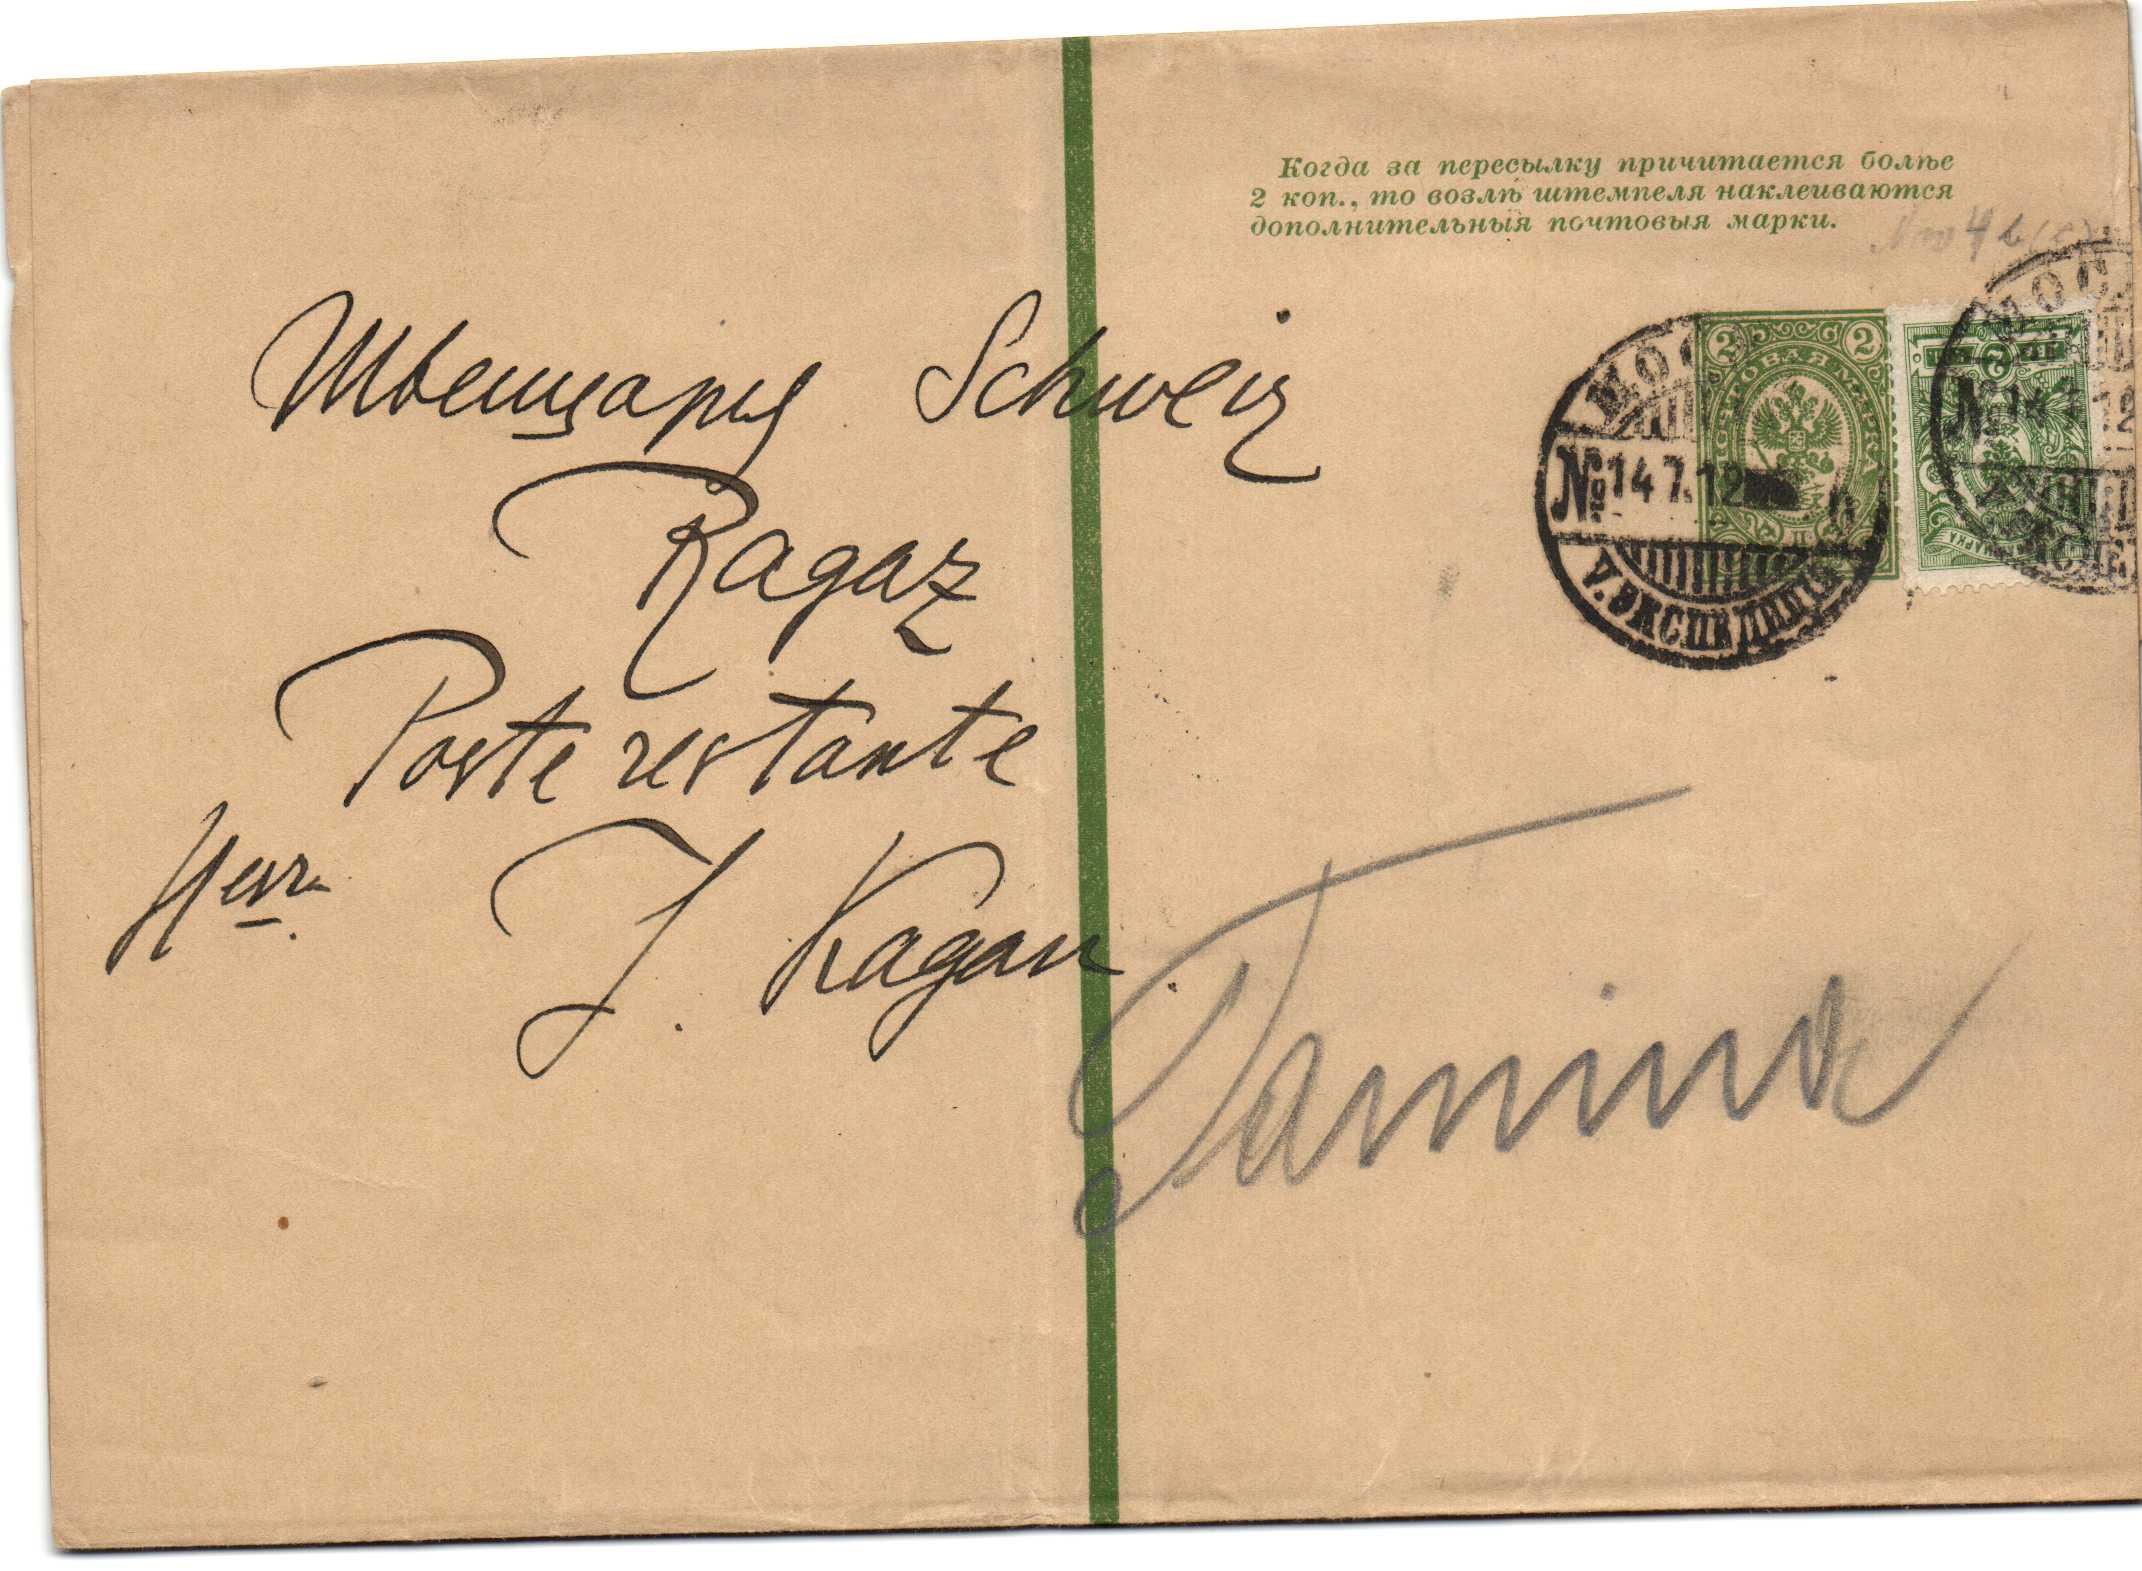 Когда за пересылку причитается болѣе
2 коп., то возлѣ штемпеля наклеиваются
дополнительныя почтовыя марки.
4 b
Швейцарія Schweiz
Ragaz
Poste restante
Herrn
J. Kagan
Tamina
2 2
ПОЧТОВАЯ МАРКА
МОС
№ 14.7.12
V. ЭКСПЕДИЦІЯ
2
МАРКА
МОС
№ 14.7.12